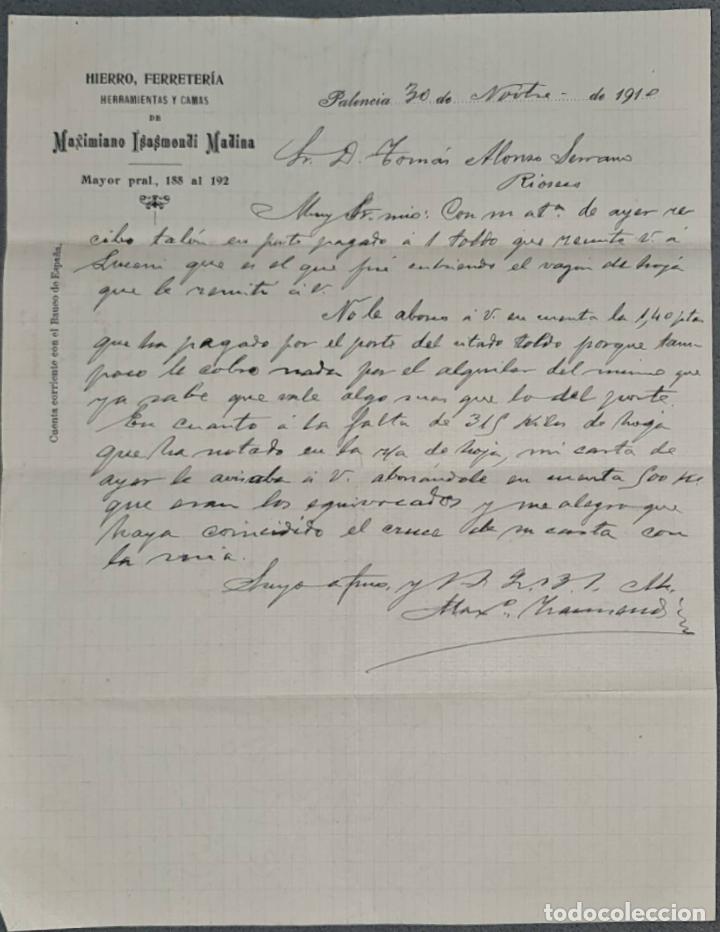 HIERRO, FERRETERÍA
HERRAMIENTAS Y CAMAS
DE
Maximiano Isasmendi Madina
Mayor pral., 188 al 192
Cuenta corriente con el Banco de España.
Palencia 30 de Novbre de 1910
Sr. D. Tomás Alonso Serrano
Rioseco
Muy Sr. mio: Con su at.ª de ayer re
cibo talón en porte pagado á 1 toldo que remite V. á
que es el que fué cubriendo el vagon de hoja
que le remití á V.
No le abono á V. en cuenta la 1,40 ptas
que ha pagado por el porte del citado toldo porque tam
poco le cobro nada por el alquiler del mismo que
ya sabe que vale algo mas que lo del porte.
En cuanto á la falta de 315 Kilos de hoja
que ha notado en la de hoja, mi carta de
ayer le avisaba á V. abonándole en cuenta 500 Ks
que eran los equivocados y me alegro que
haya coincidido el cruce de su carta con
la mia.
Suyo afmo. y S. S. q. s. b. s. m.
Max.º Isasmendi
todocoleccion.net